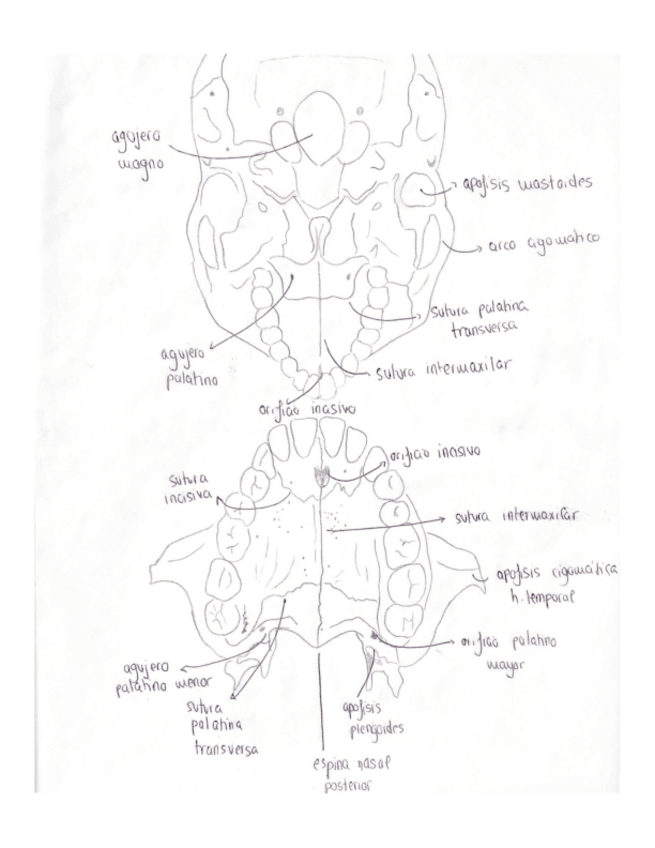 agujero
magno
apofisis mastoides
arco cigomático
sutura palatina
transversa
agujero
palatino
sutura intermaxilar
orificio incisivo
orificio incisivo
sutura
incisiva
sutura intermaxilar
apofisis cigomática
h. temporal
orificio palatino
mayor
agujero
palatino menor
sutura
palatina
transversa
apofisis
pterigoides
espina nasal
posterior